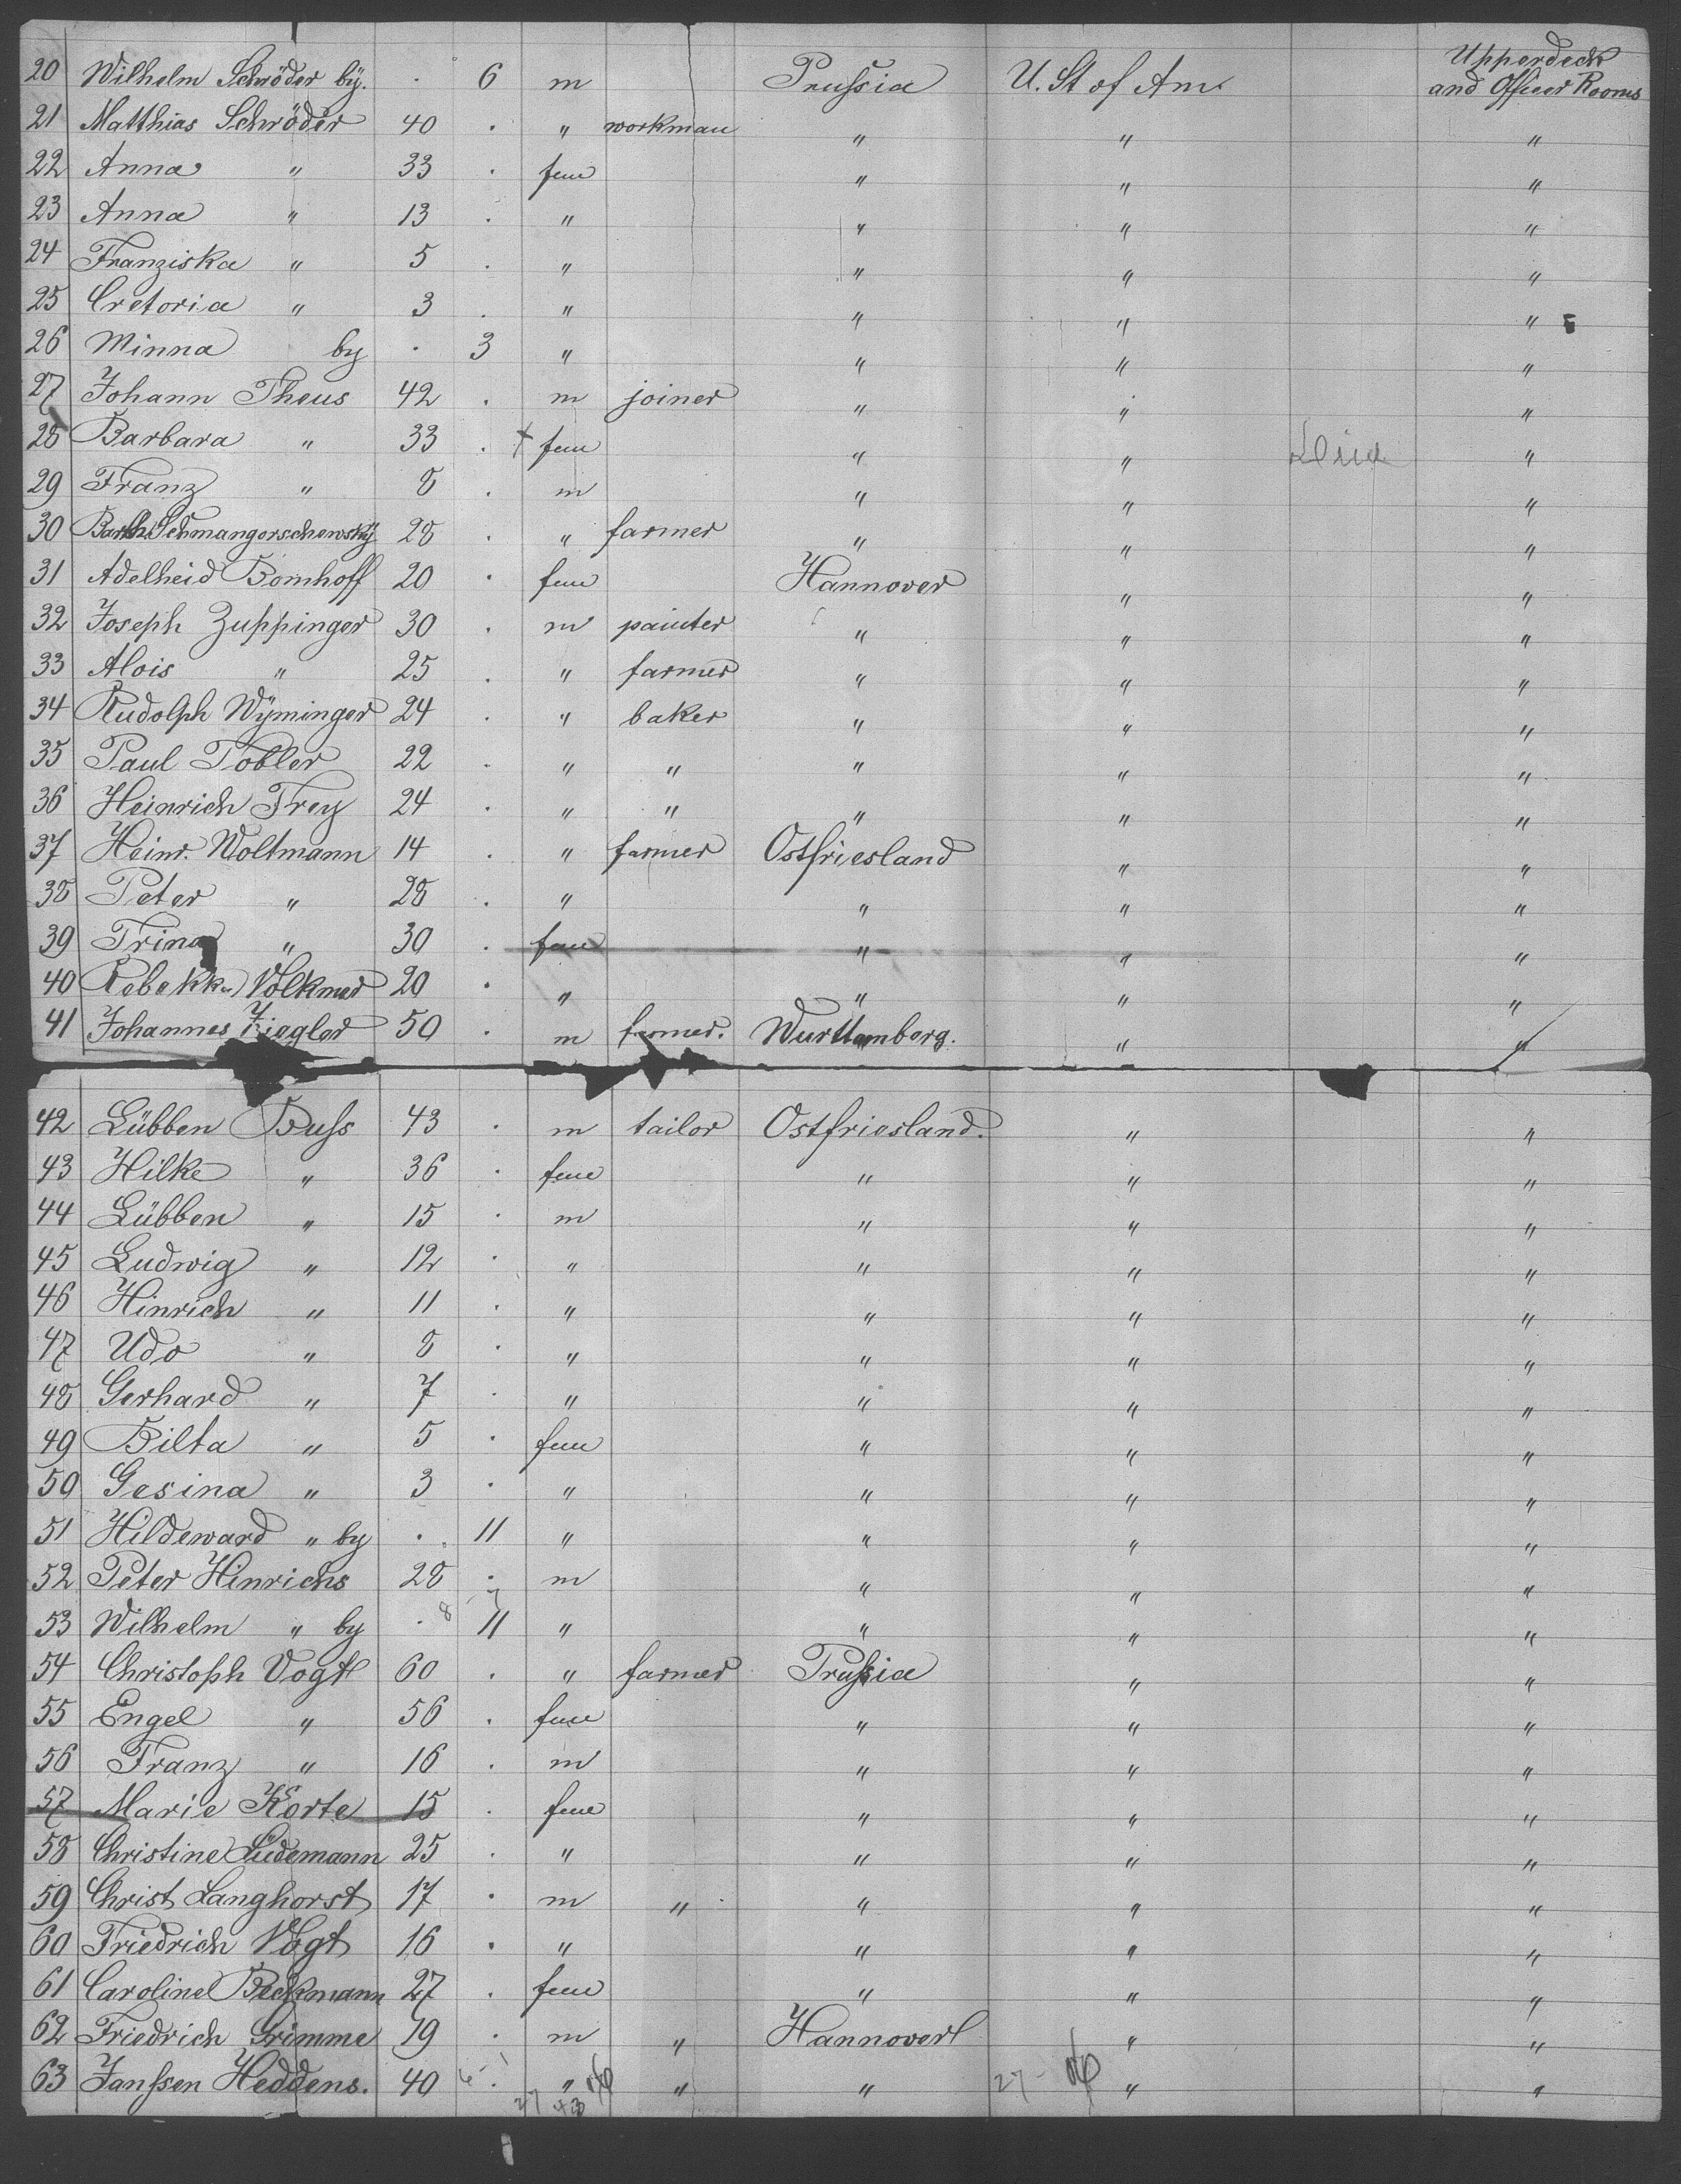 20 Wilhelm Schröder by. . 6 m Prussia U. St of Am. Upperdeck and Officer Rooms
21 Matthias Schröder 40 . " workman " " "
22 Anna " 33 . fem " " "
23 Anna " 13 . " " " "
24 Franziska " 5 . " " " "
25 Cretoria " 3 . " " " "
26 Minna by . 3 " " " "
27 Johann Theus 42 . m joiner " " "
28 Barbara " 33 . + fem " " "
29 Franz " 8 . m " " "
30 Barth. Schmangorschewsky 28 . " farmer " " "
31 Adelheid Bomhoff 20 . fem Hannover " "
32 Joseph Zuppinger 30 . m painter " " "
33 Alois " 25 . " farmer " " "
34 Rudolph Wÿminger 24 . " baker " " "
35 Paul Tobler 22 . " " " " "
36 Heinrich Frey 24 . " " " " "
37 Heinr. Woltmann 14 . " farmer Ostfriesland " "
38 Peter " 28 . " " " "
39 Trina " 30 . fem " " "
40 Rebekka Volkmer 20 . " " " "
41 Johannes Ziegler 50 . m farmer. Wurttemberg. " "
42 Lübben Buss 43 . m tailor Ostfriesland. " "
43 Hilke " 36 . fem " " "
44 Lübben " 15 . m " " "
45 Ludwig " 12 . " " " "
46 Hinrich " 11 . " " " "
47 Udo " 8 . " " " "
48 Gerhard " 7 . " " " "
49 Bilta " 5 . fem " " "
50 Gesina " 3 . " " " "
51 Hildeward " by . 11 " " " "
52 Peter Hinrichs 28 . m " " "
53 Wilhelm " by . 8 11 " " " "
54 Christoph Vogt 60 . " farmer Prussia " "
55 Engel " 56 . fem " " "
56 Franz " 16 . m " " "
57 Marie Korte 15 . fem " " "
58 Christine Lüdemann 25 . " " " "
59 Christ Langhorst 17 . m " " " "
60 Friedrich Vogt 16 . " " " "
61 Caroline Beckmann 27 . fem " " "
62 Friedrich Grimme 19 . m " Hannover " "
63 Janssen Heddens. 40 . " " " 27 " "
27 43